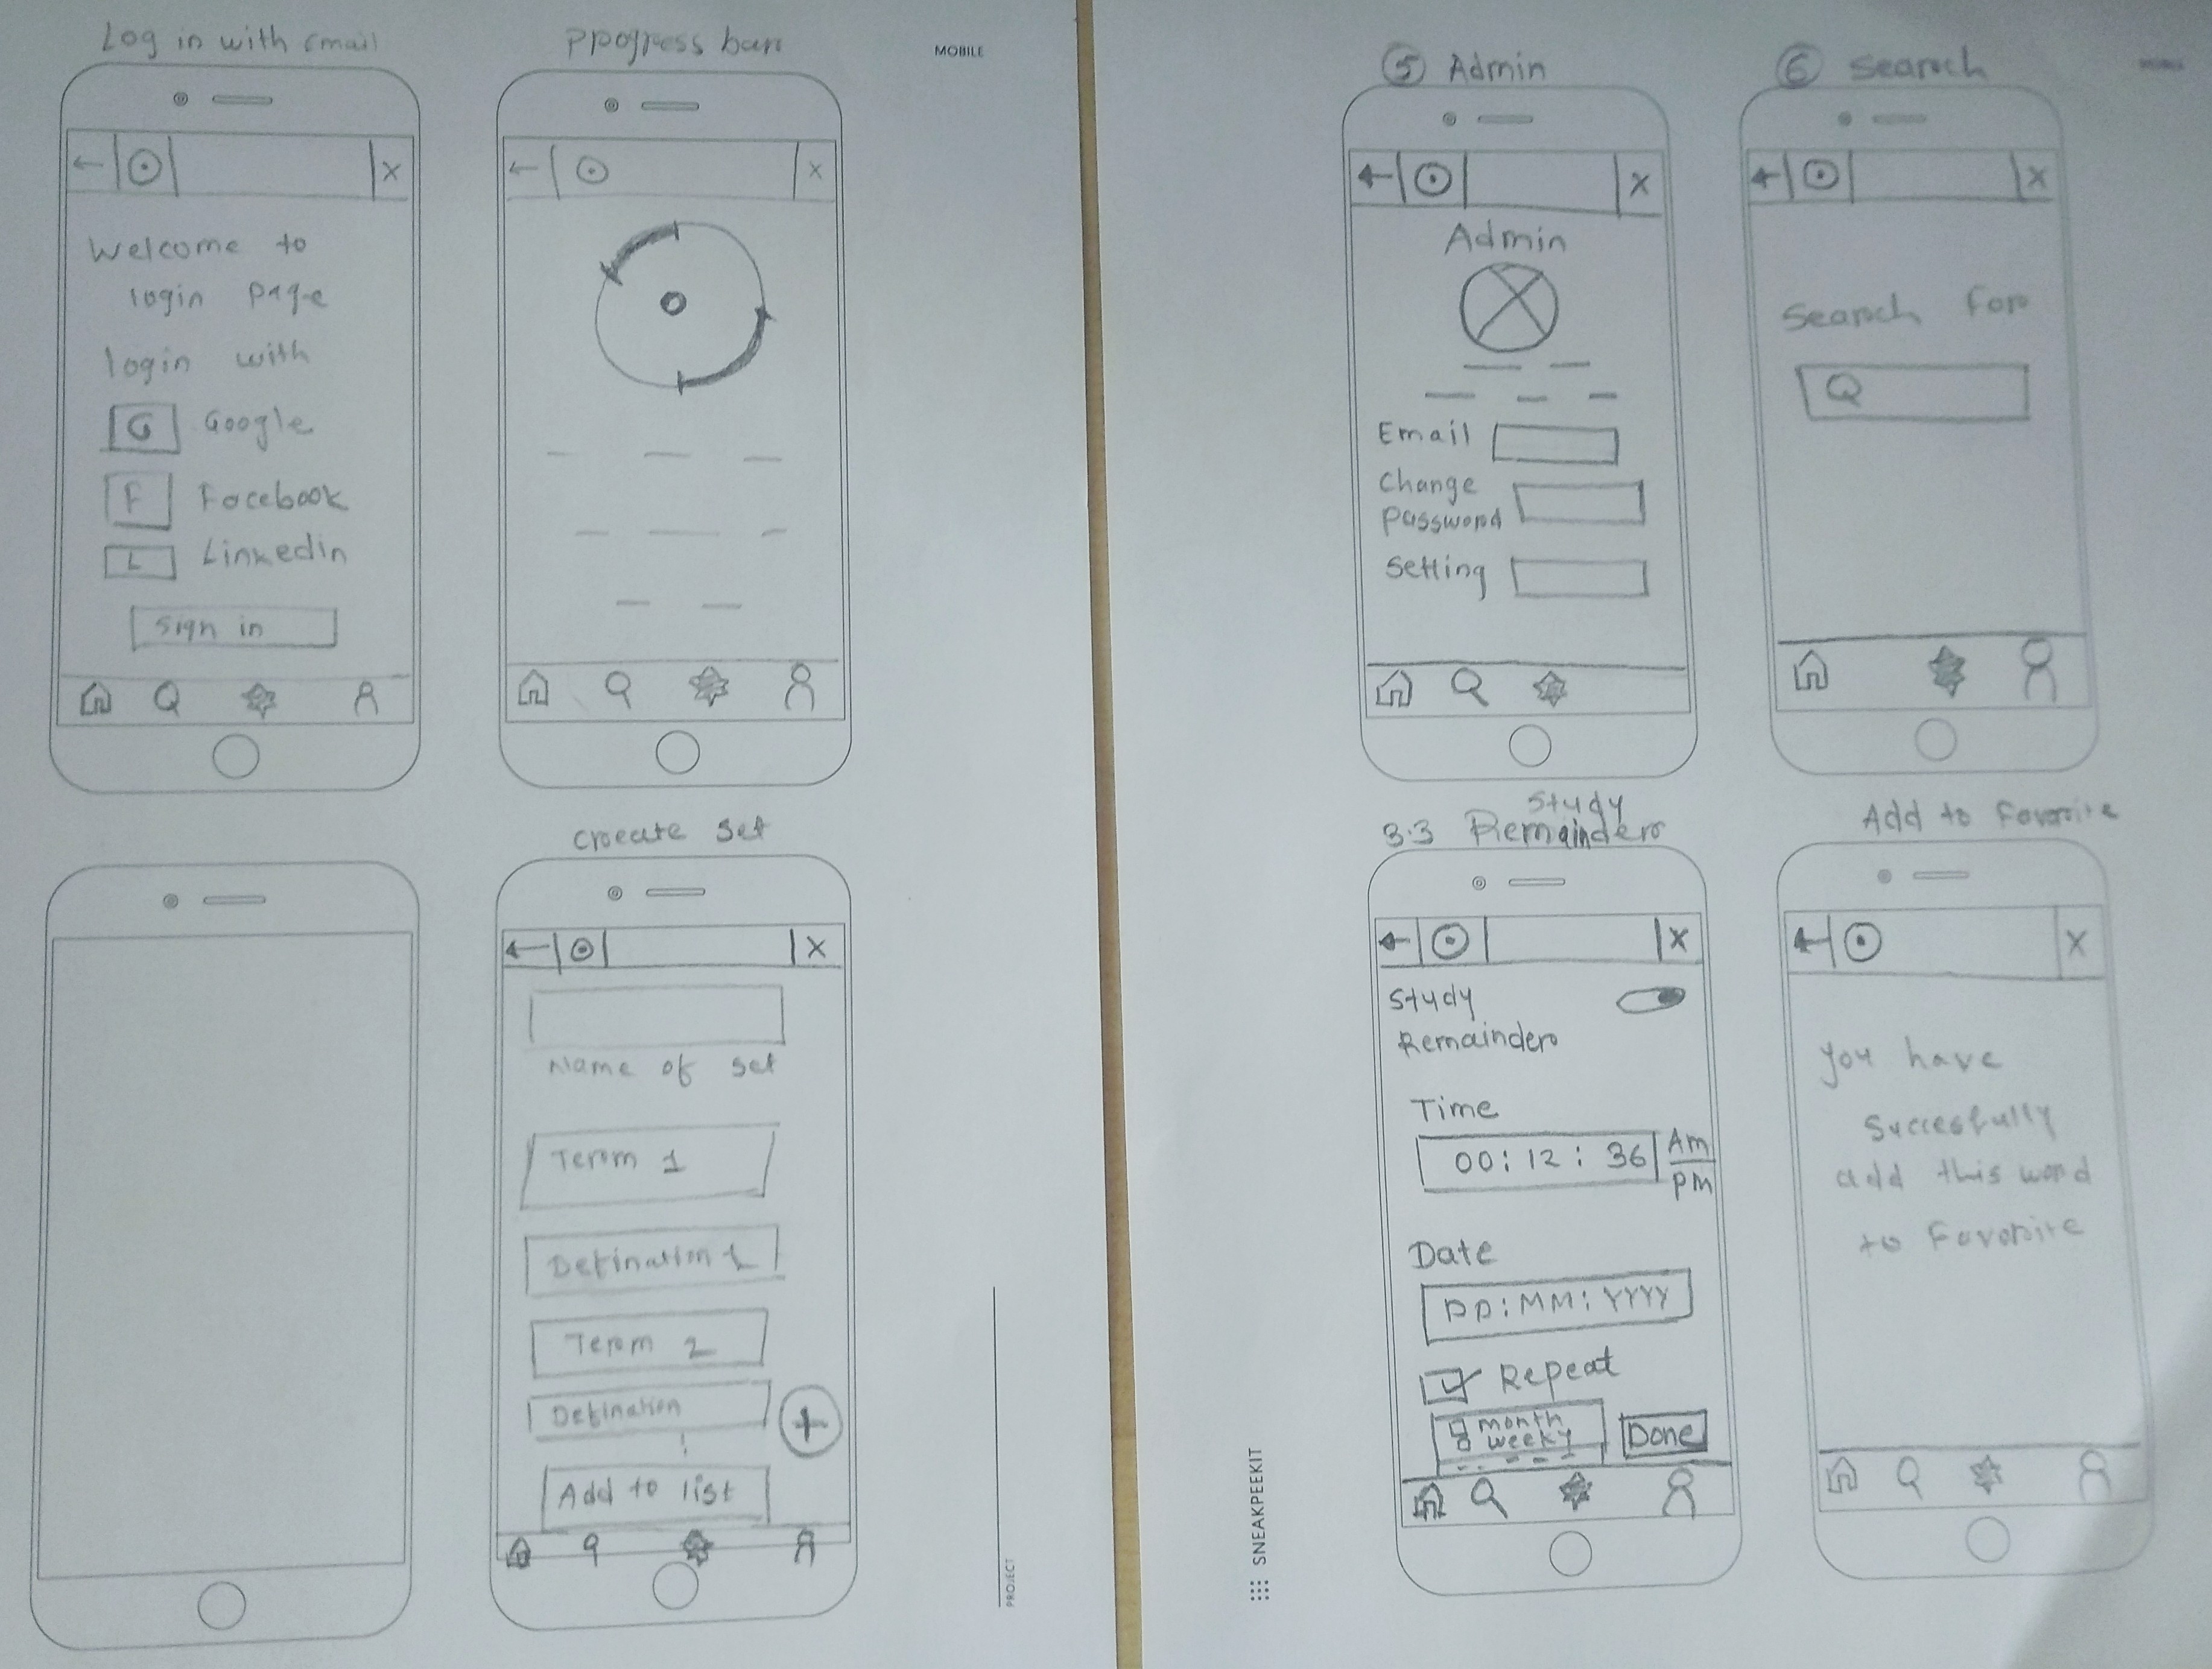 Log in with Email
X
Welcome to
login page
login with
G Google
F Facebook
L Linkedin
Sign in
Progress bar
MOBILE
X
Create set
X
Name of set
Term 1
Defination 1
Term 2
Defination
+
Add to list
PROJECT
5 Admin
X
Admin
Email
Change
Password
Setting
6 Search
X
Search For
3.3 Study
Remainder
X
Study
Remainder
Time
00:12:36 Am
PM
Date
DD:MM:YYYY
Repeat
month
weeky
Done
SNEAKPEEKIT
Add to Favorite
X
you have
Succesfully
add this word
to Favorite